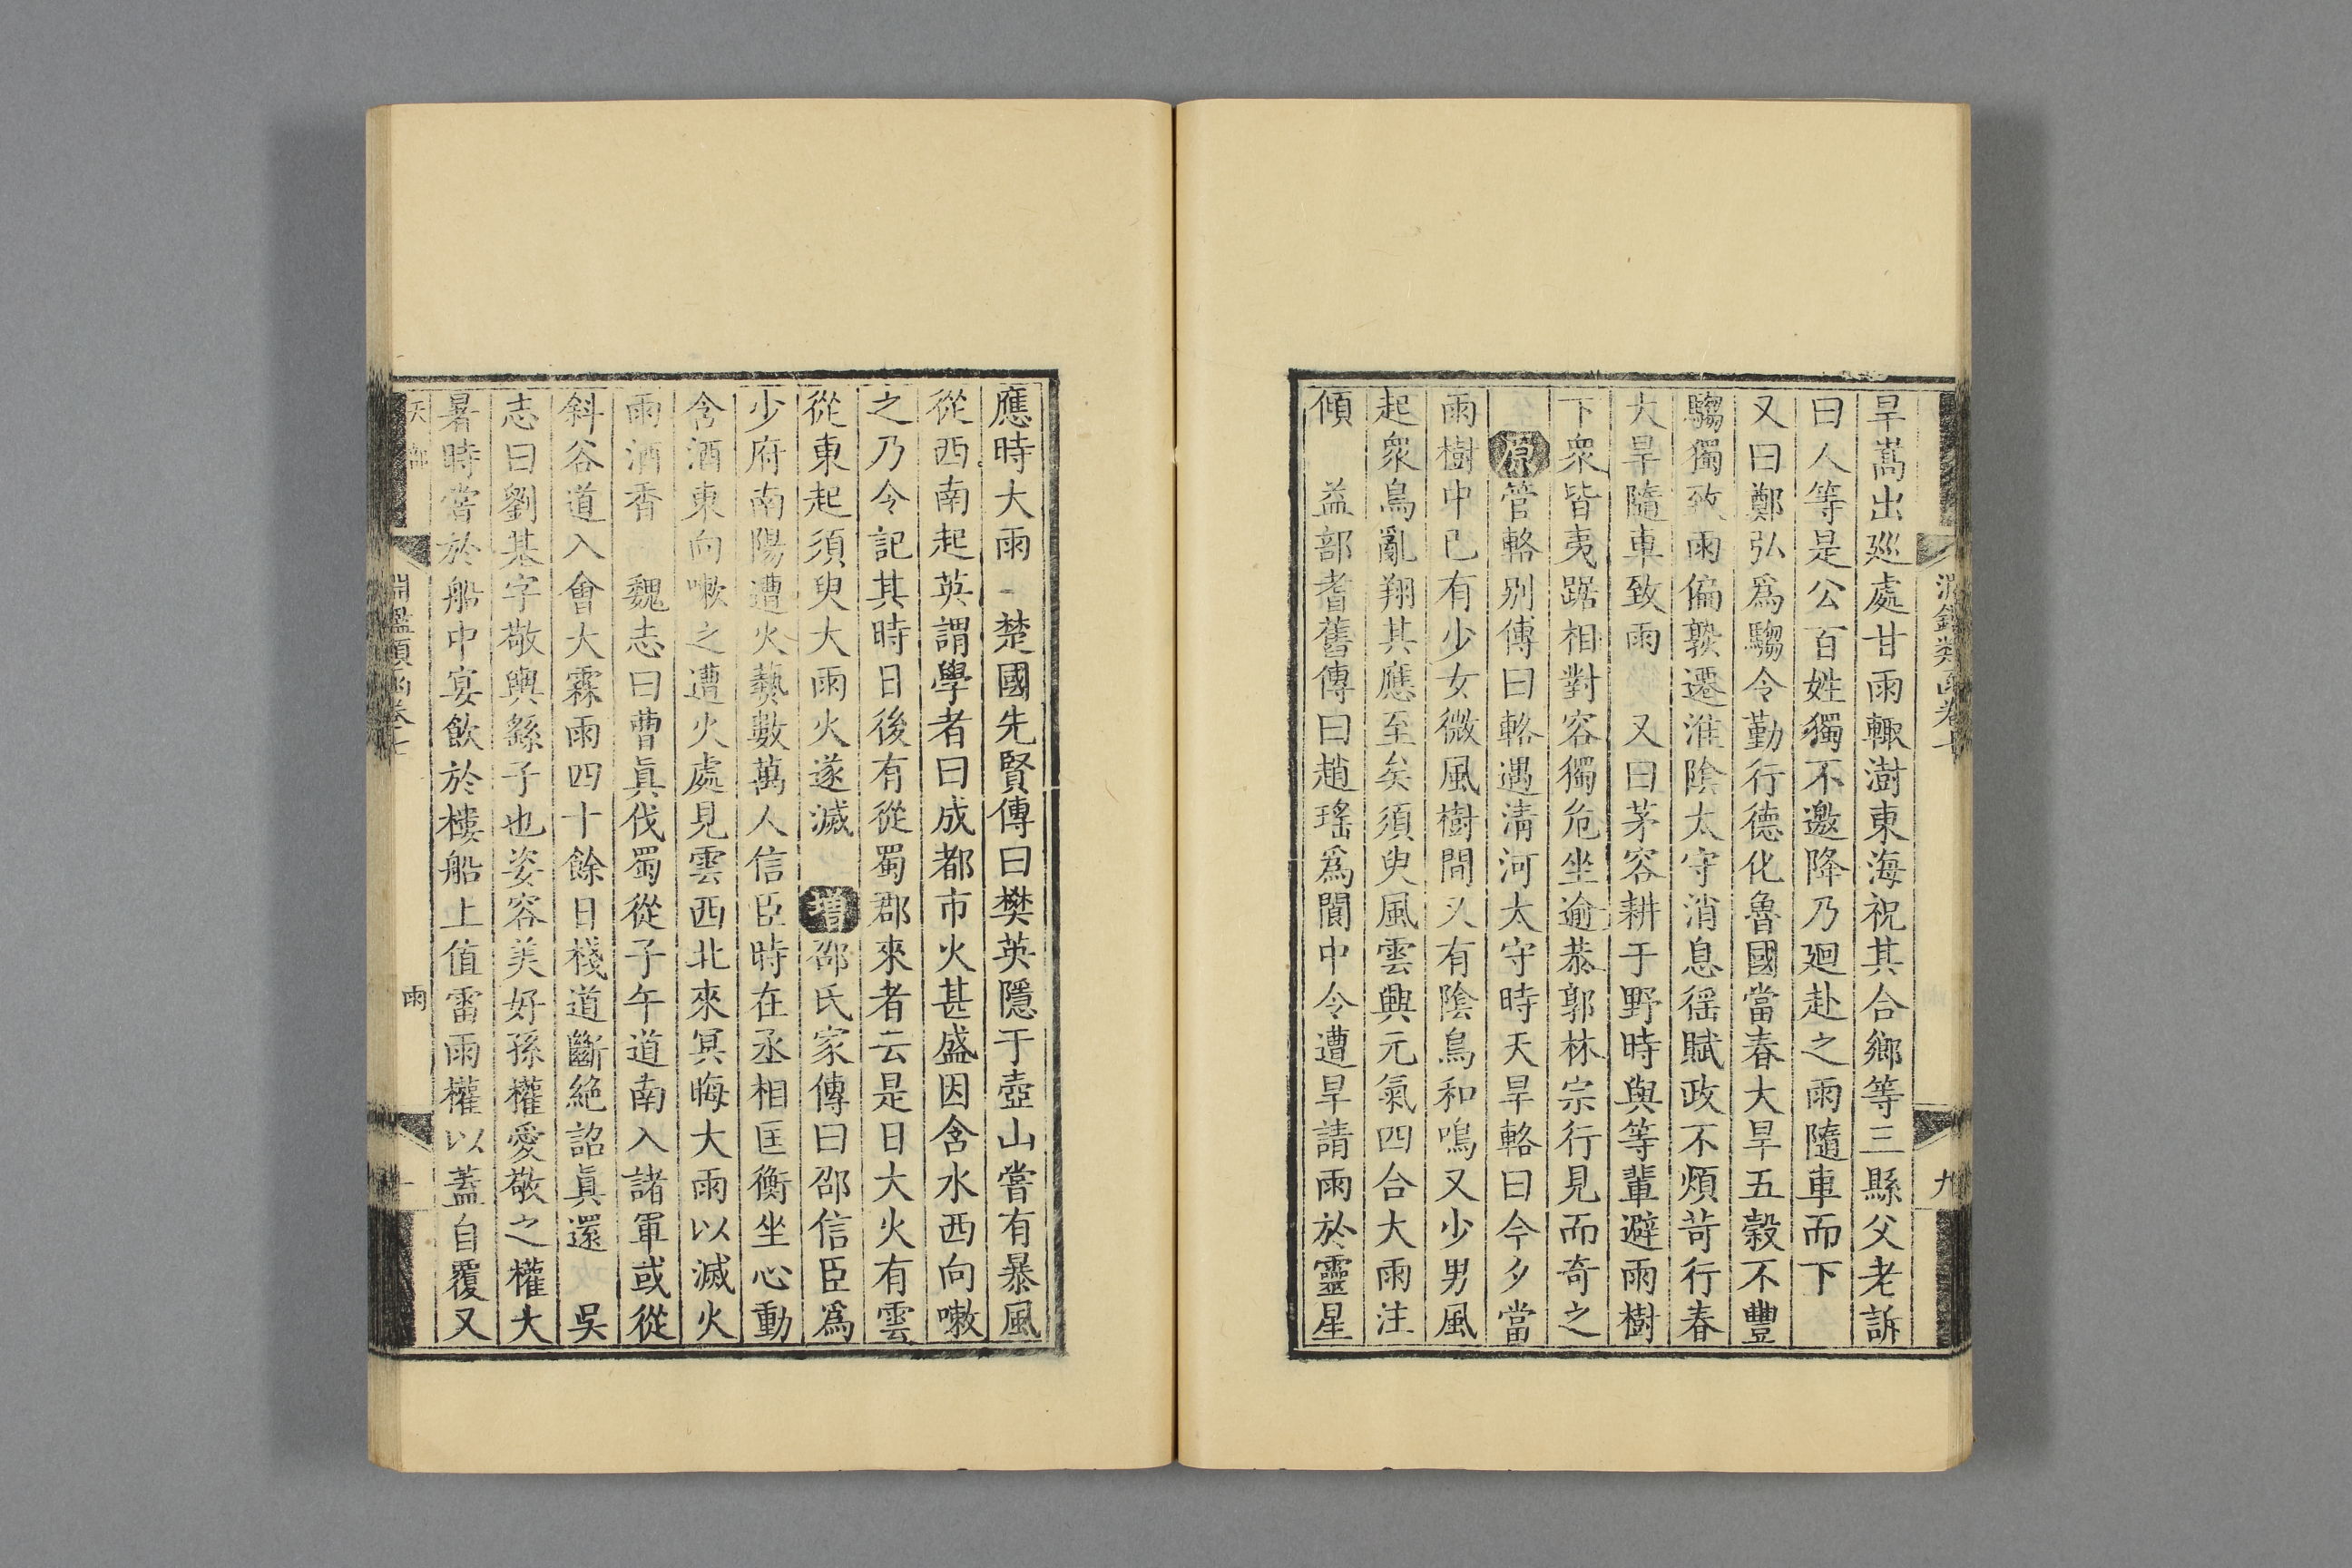 淵鑑類函卷七
九
旱嵩出廵處甘雨輒澍東海祝其合鄉等三縣父老訴
曰人等是公百姓獨不邀降乃廻赴之雨隨車而下
又曰鄭弘爲騶令勤行德化魯國當春大旱五榖不豐
騶獨致雨偏熟遷淮陰太守消息徭賦政不煩苛行春
大旱隨車致雨 又曰茅容耕于野時與等輩避雨樹
下衆皆夷踞相對容獨危坐逾恭郭林宗行見而奇之
原管輅别傳曰輅遇清河太守時天旱輅曰今夕當
雨樹中已有少女微風樹間又有陰鳥和鳴又少男風
起衆鳥亂翔其應至矣須臾風雲興元氣四合大雨注
傾 益部耆舊傳曰趙瑤爲閬中令遭旱請雨於靈星
應時大雨 楚國先賢傳曰樊英隱于壺山嘗有暴風
從西南起英謂學者曰成都市火甚盛因含水西向嗽
之乃令記其時日後有從蜀郡來者云是日大火有雲
從東起須臾大雨火遂滅 增邵氏家傳曰邵信臣爲
少府南陽遭火爇數萬人信臣時在丞相匡衡坐心動
含酒東向嗽之遭火處見雲西北來冥晦大雨以滅火
雨酒香 魏志曰曹眞伐蜀從子午道南入諸軍或從
斜谷道入會大霖雨四十餘日棧道斷絶詔眞還 吳
志曰劉基字敬輿繇子也姿容美好孫權愛敬之權大
暑時嘗於船中宴飲於樓船上值雷雨權以蓋自覆又
天部
淵鑑類函卷七
雨